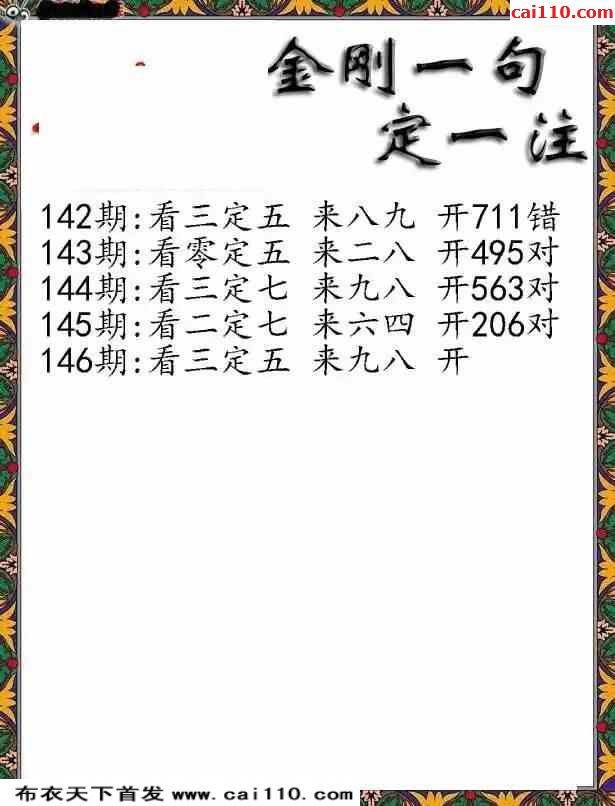 cai110.com
金刚一句
定一注
142期:看三定五 来八九 开711错
143期:看零定五 来二八 开495对
144期:看三定七 来九八 开563对
145期:看二定七 来六四 开206对
146期:看三定五 来九八 开
布衣天下首发 www.cai110.com